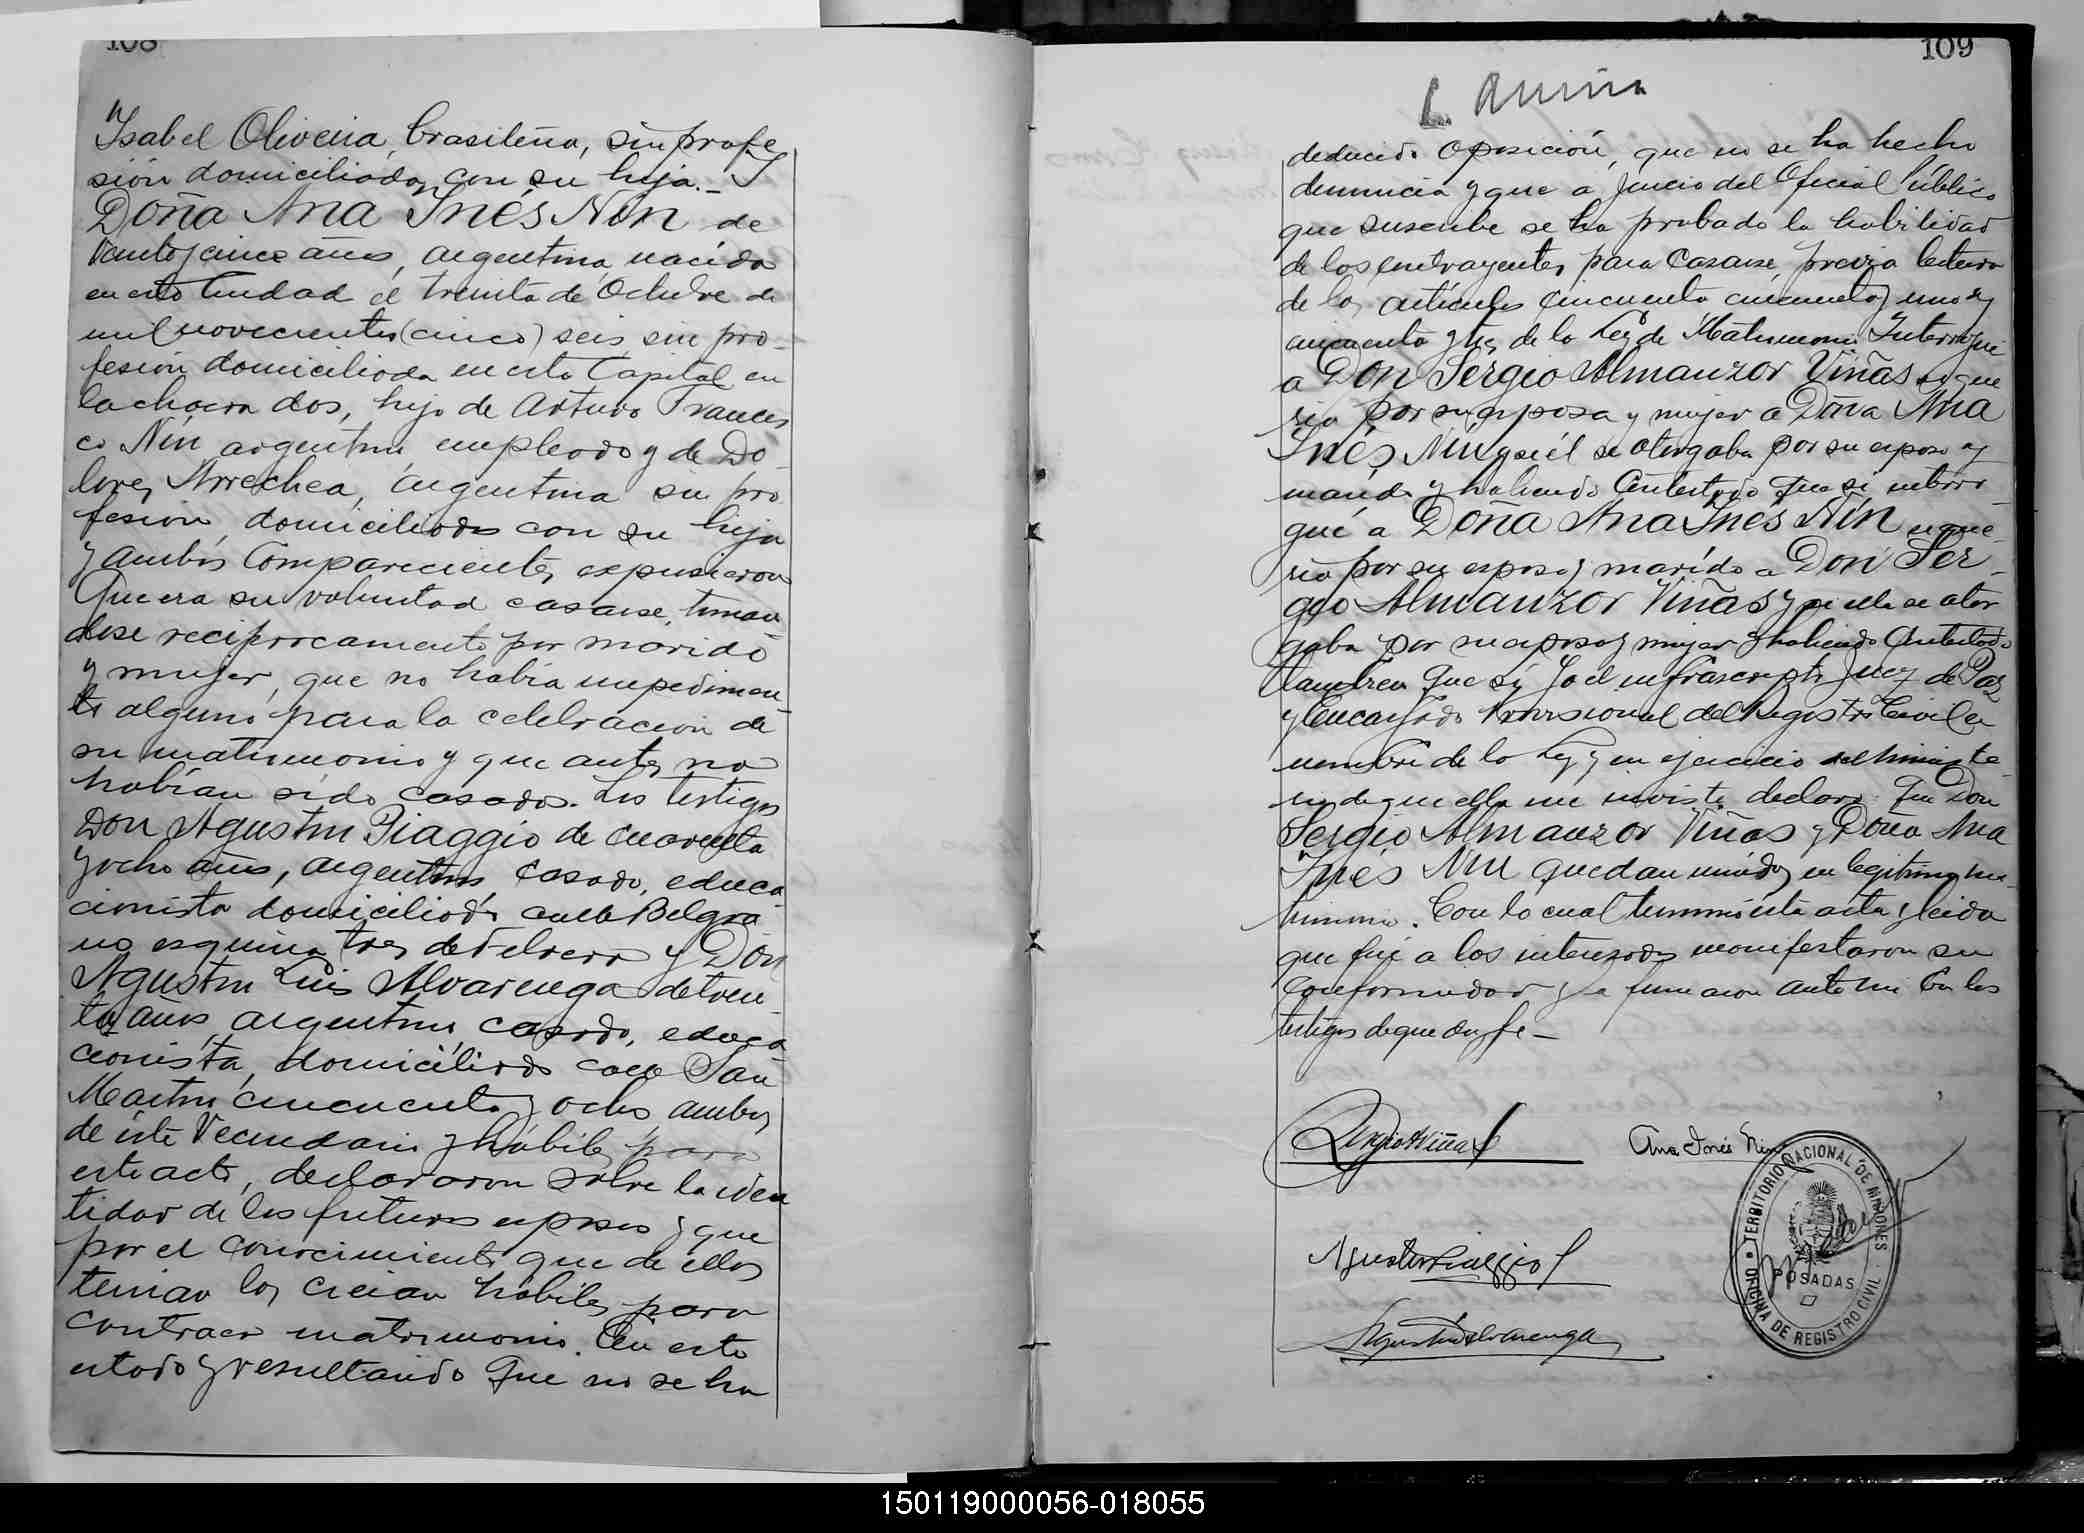 108
Isabel Oliveira, brasileña, sin profe
sión domiciliados con su hija.-
Doña Ana Inés Nin de
veinticinco años, argentina, nacida
en esta Ciudad el treinta de Octubre de
mil novecientos (cinco) seis, sin pro-
fesión domiciliada en esta Capital en
la chacra dos, hija de Arturo Frances
co Nin, argentino empleado y de Do-
lores Arrechea, argentina sin pro
fesión, domiciliados con su hija
y ambos Comparecientes expusieron
Que era su voluntad casarse, toman
dose recíprocamente por marido
y mujer, que no había impedimen-
to alguno para la celebración de
su matrimonio y que antes no
habían sido casados. Los testigos
Don Agustin Piaggio de cuarenta
y ocho años, argentino, casado, educa
cionista domiciliado calle Belgra
no esquina tres de Febrero y Don
Agustin Luis Alvarenga de trein
ta años, argentino, casado, educa
cionista, domiciliado calle San
Martin cincuenta y ocho, ambos
de este Vecindario y hábiles para
este acto, declararon sobre la iden
tidad de los futuros esposos y que
por el conocimiento que de ellos
tenian los creian hábiles para
contraer matrimonio. En este
estado y resultando Que no se ha
109
deducido oposición, que no se ha hecho
denuncia y que a juicio del Oficial Público
que suscribe se ha probado la habilidad
de los contrayentes para casarse, previa lectura
de los artículos cincuenta cincuenta y uno y
cincuenta y tres de la Ley de Matrimonio Interrogué
a Don Sergio Almanzor Viñas si que
ria por su esposa y mujer a Doña Ana
Inés Nin y si él se otorgaba por su esposo y
marido y habiendo Contestado Que si interro
gué a Doña Ana Inés Nin si que-
ria por su esposo y marido a Don Ser-
gio Almanzor Viñas y si ella se otor
gaba por su esposa y mujer y habiendo Contestado
tambien Que si, Yo el infrascripto Juez de Paz
y Encargado Provisional del Registro Civil en
nombre de la Ley y en ejercicio del ministe-
rio de que ella me inviste declaro: Que Don
Sergio Almanzor Viñas y Doña Ana
Inés Nin quedan unidos en legitimo ma-
trimonio. Con lo cual terminó esta acta y leida
que fué a los interesados manifestaron su
conformidad y la firmaron ante mi con los
testigos de que doy fe-
Sergio A Viñas
Ana Inés Nin
Agustin Piaggio
Agustin L Alvarenga
TERRITORIO NACIONAL DE MISIONES
POSADAS
OFICINA DE REGISTRO CIVIL
150119000056-018055